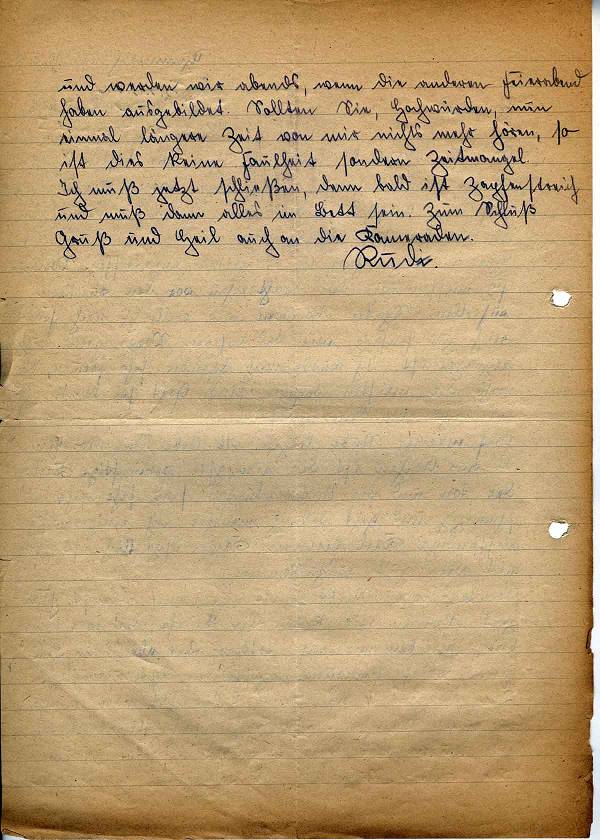 und werden wir abends, wenn die anderen Feierabend
haben ausgebildet. Sollten Sie, Hochwürden, nun
einmal längere Zeit von mir nichts mehr hören, so
ist dies keine Faulheit sondern Zeitmangel.
Ich muß jetzt schließen, denn bald ist Zapfenstreich
und muß dann alles im Bett sein. Zum Schluß
Gruß und Heil auch an die Kameraden.
Rudi.